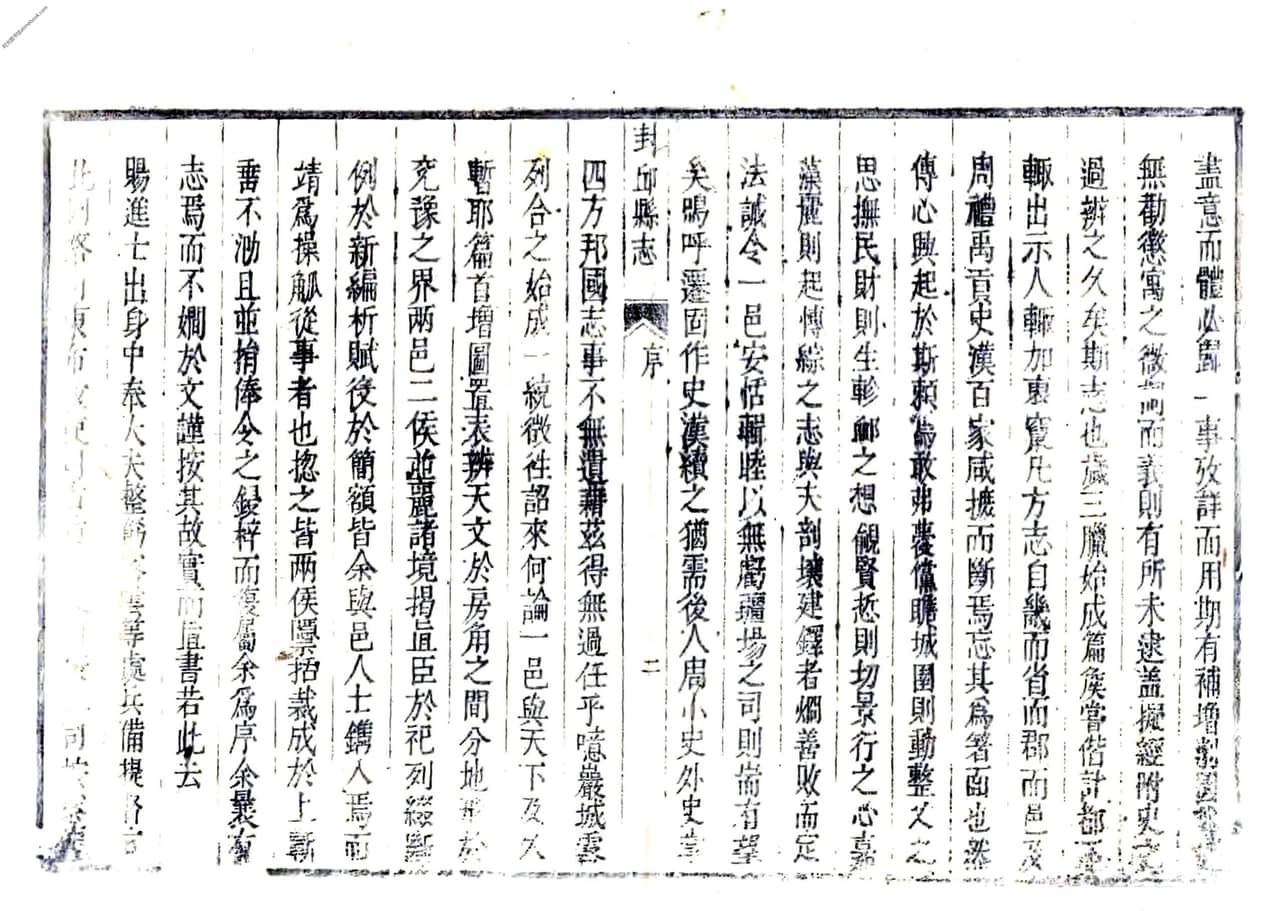 盡意而體必歸一事攷詳而用期有補增
無勸懲寓之微詞而義則有所未逮蓋擬經附史之
過辨之久矣斯志也歲三臘始成篇矦嘗偕計都
輙出示人輙加衷竄凡方志自畿而省而郡而邑及
周禮禹貢史漢百家咸摭而斷焉忘其爲箸面也然
傳心興起於斯頼爲敢弗覆僨瞻城圍則動整乂之
思撫民財則生軫䘏之想覩賢悊則切景行之心嘉
藻麗則起博綜之志與夫剖壤建鐸者燗善敗而定
法誡令一邑安恬輯睦以無虧疆場之司則耑有望
矣嗚呼遷固作史漢續之猶需後人周小史外史掌
封邱縣志
序
二
四方邦國志事不無遺藉茲得無過任乎噫巖城雲
列合之始成一統徴徃詔來何論一邑與天下及久
暫耶篇首增圖置表辨天文於房角之間分地
於兖豫之界两邑二侯並麗諸境揭直臣於祀列
例於新編析賦役於簡額皆余與邑人士鐫人焉而
靖爲操觚從事者也捴之皆两侯檃括裁成於上斬
畨不泐且並捐俸令之鋟梓而復屬余爲序余曩有
志焉而不嫺於文謹按其故實而直書若此云
賜進士出身中奉大夫整飭 等處兵備提